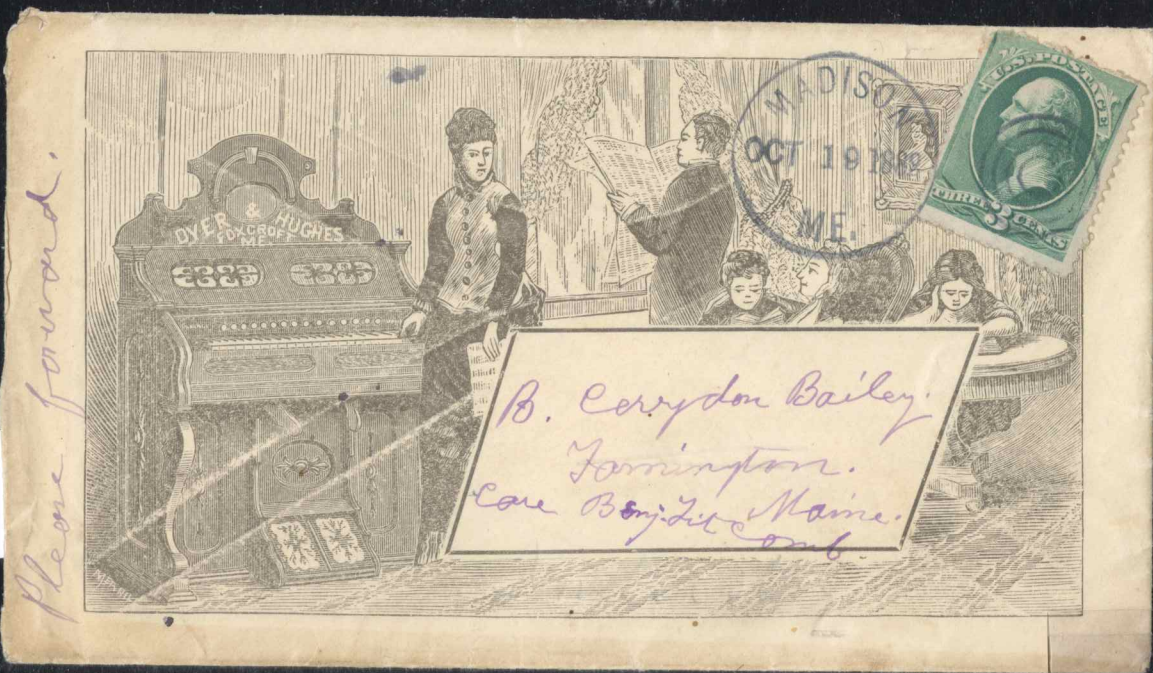 Please forward.
DYER & HUGHES
FOXCROFT
ME.
MADISON
OCT 19
ME.
U.S. POSTAGE
THREE 3 CENTS
B. Cerrydon Bailey.
Farmington.
Maine.
Care Benj. Titcomb